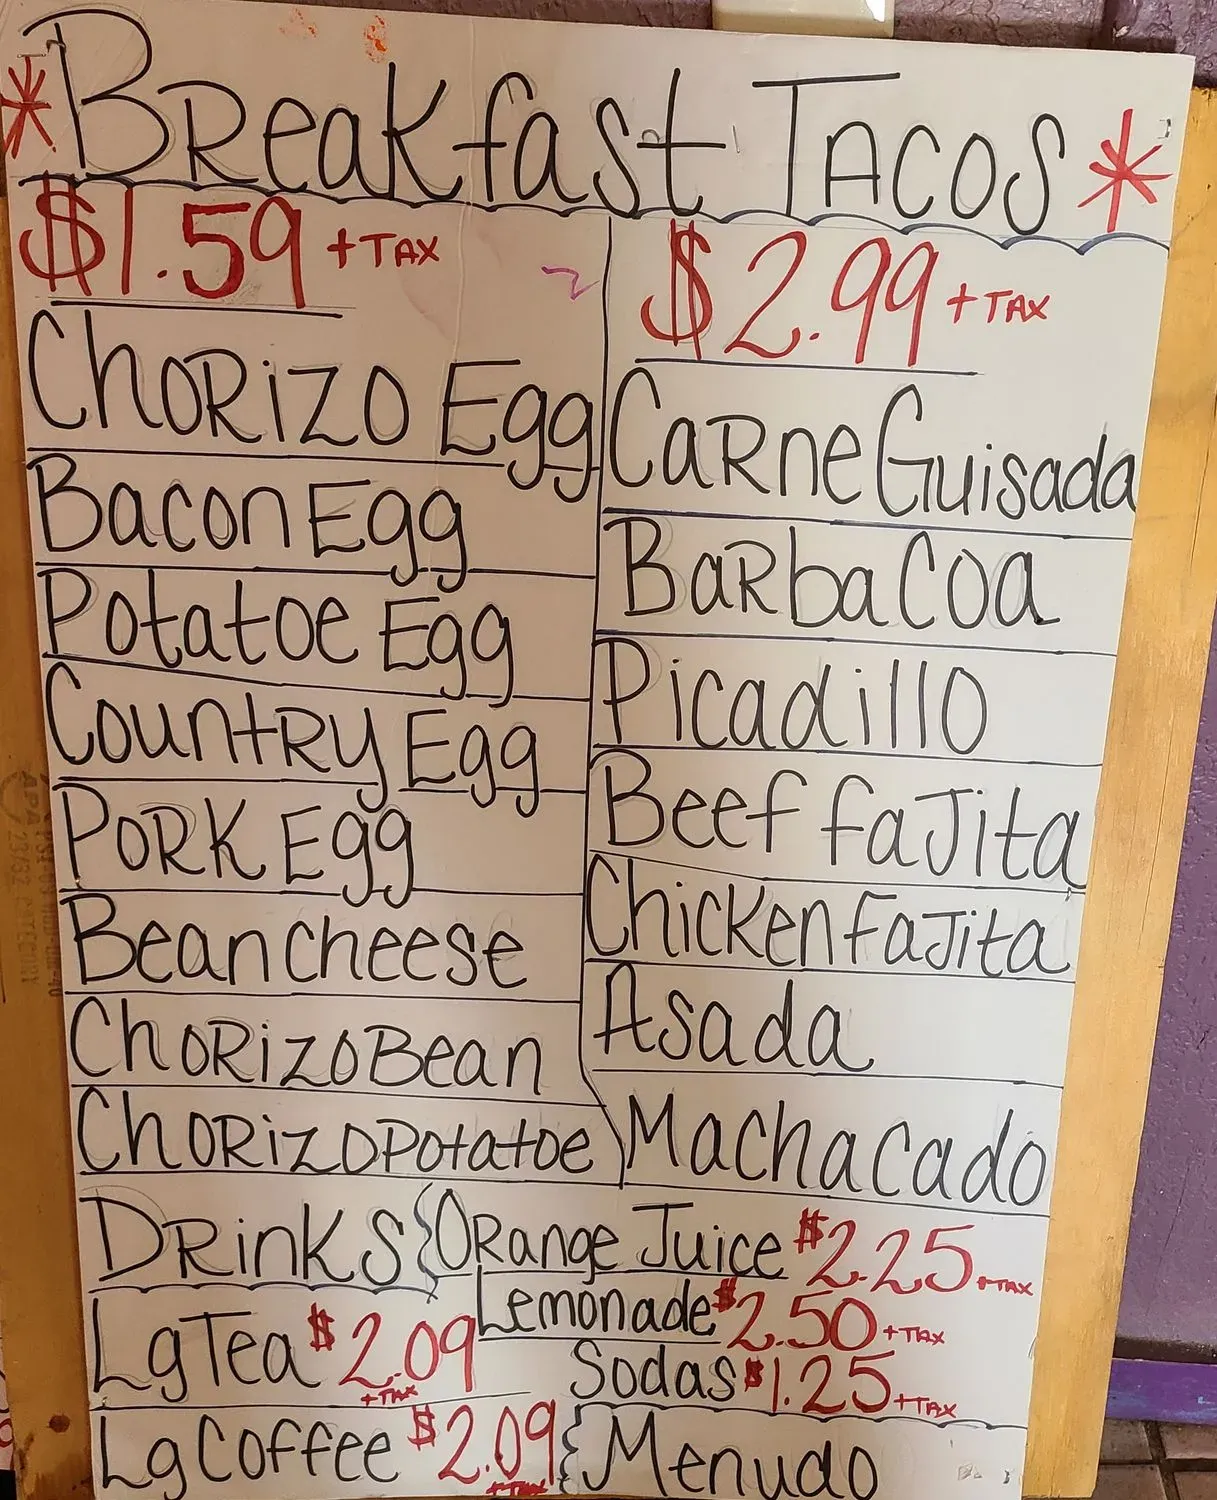 * Breakfast Tacos *
$1.59 + TAX
Chorizo Egg
Bacon Egg
Potatoe Egg
Country Egg
Pork Egg
Bean cheese
Chorizo Bean
Chorizo Potatoe
$2.99 + TAX
Carne Guisada
Barbacoa
Picadillo
Beef Fajita
Chicken Fajita
Asada
Machacado
Drinks { Orange Juice $2.25 + TAX
Lemonade $2.50 + TAX
Lg Tea $2.09 + TAX
Sodas $1.25 + TAX
Lg Coffee $2.09 + TAX { Menudo